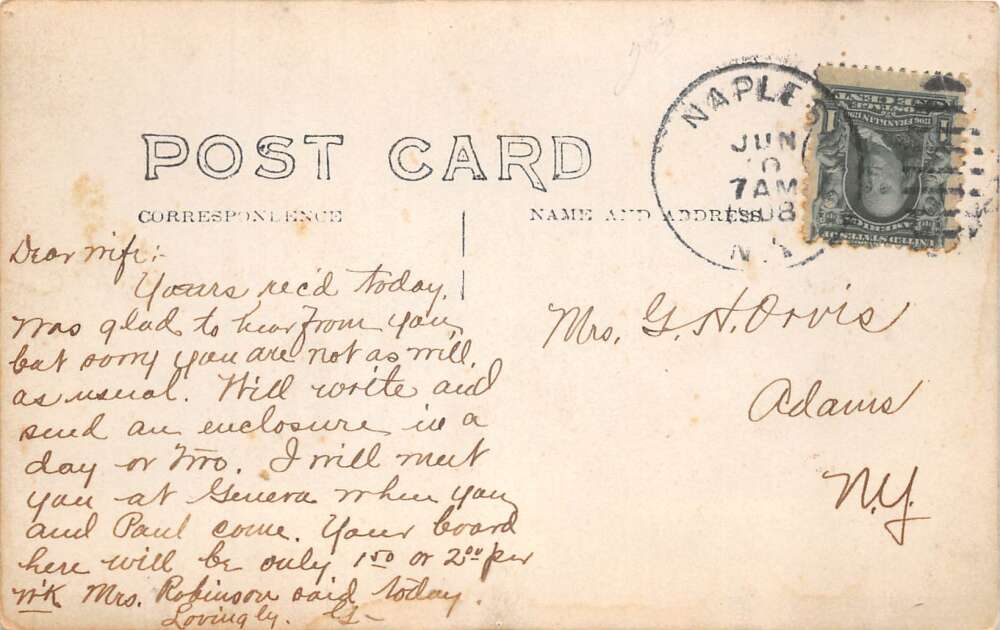 POST CARD
CORRESPONDENCE
NAME AND ADDRESS
NAPLES
JUN
10
7AM
1908
N.Y.
1
SERIES 1902
ONE CENT
1706 FRANKLIN 1790
UNITED STATES OF
AMERICA
Dear wife:-
Yours rec'd today.
Was glad to hear from you,
but sorry you are not as well
as usual. Will write and
send an enclosure in a
day or two. I will meet
you at Geneva when you
and Paul come. Your board
here will be only 1.50 or 2.00 per
wk Mrs. Robinson said today.
Lovingly. G-
Mrs. G. H. Orvis
Adams
N.Y.